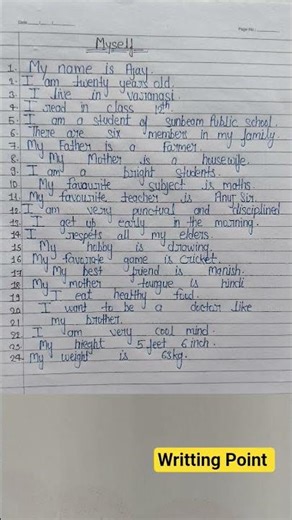 Date
Page No.
Myself
1. My name is Ajay.
2. I am twenty years old.
3. I live in varanasi
4. I read in class 12th
5. I am a student of sunbeam Public school.
6. There are six members in my family
7. My Father is a farmer.
8. My Mother is a housewife.
9. I am a bright students.
10. My favourite subject is maths.
11. My favourite teacher is Anuj Sir.
12. I am very punctual and disciplined
13. I get up early in the morning.
14. I respets all my elders.
15. My hobby is drawing.
16. My favorate game is cricket.
17. My best friend is Manish.
18. My mother tongue is hindi
19. I eat healthy food.
20. I want to be a doctor like
21. my brother.
22. I am very cool mind.
23. My hieght 5 feet 6 inch.
24. My weight is 63kg.
Writting Point